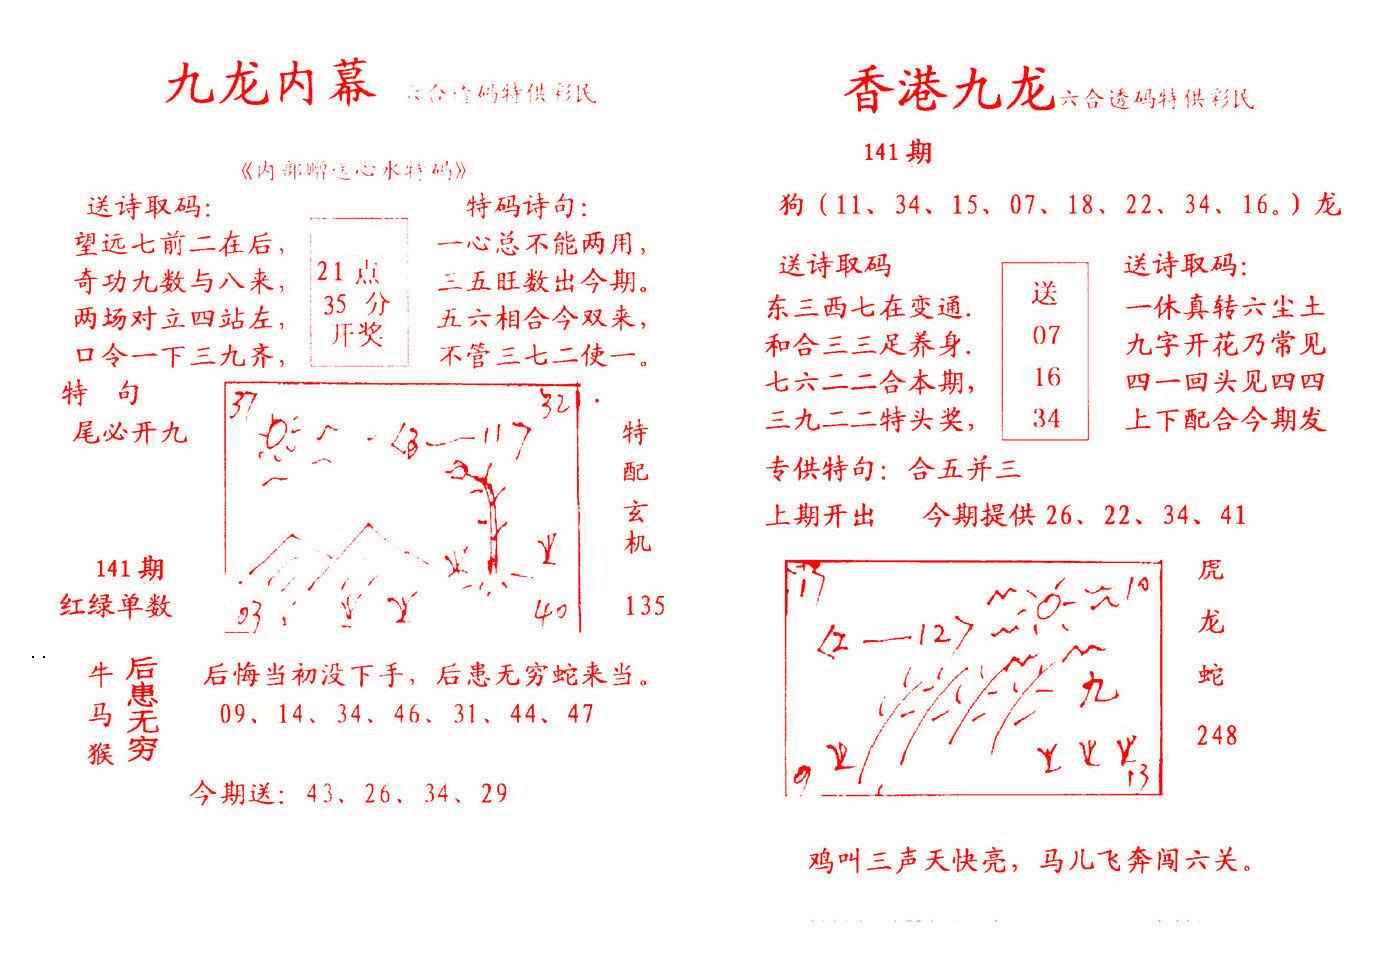 九龙内幕 六合透码特供彩民
《内部赠送心水特码》
送诗取码：
望远七前二在后，
奇功九数与八来，
两场对立四站左，
口令一下三九齐，
21点
35 分
开奖
特码诗句：
一心总不能两用，
三五旺数出今期。
五六相合今双来，
不管三七二使一。
特 句
尾必开九
37
32
〈3——11〉
03
40
特配玄机
135
141期
红绿单数
牛马猴
后患无穷
后悔当初没下手，后患无穷蛇来当。
09、14、34、46、31、44、47
今期送：43、26、34、29
香港九龙 六合透码特供彩民
141期
狗（11、34、15、07、18、22、34、16。）龙
送诗取码
东三西七在变通.
和合三三足养身.
七六二二合本期，
三九二二特头奖，
送
07
16
34
送诗取码：
一休真转六尘土
九字开花乃常见
四一回头见四四
上下配合今期发
专供特句：合五并三
上期开出 今期提供26、22、34、41
13
10
〈2——12〉
九
9
13
虎
龙
蛇
248
鸡叫三声天快亮，马儿飞奔闯六关。